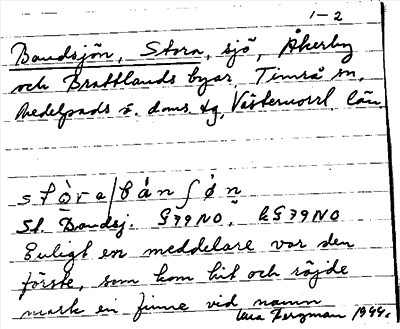 1-2
Bandsjön, Stora, sjö, Åkerby
och Brattlands byar, Timrå sn,
Medelpads ö. doms. tg, Västernorrl. län.
St. Bandsj. G79NO, kG79NO
Enligt en meddelare var den
förste, som kom hit och röjde
mark en finne vid namn
Bergman 1944.